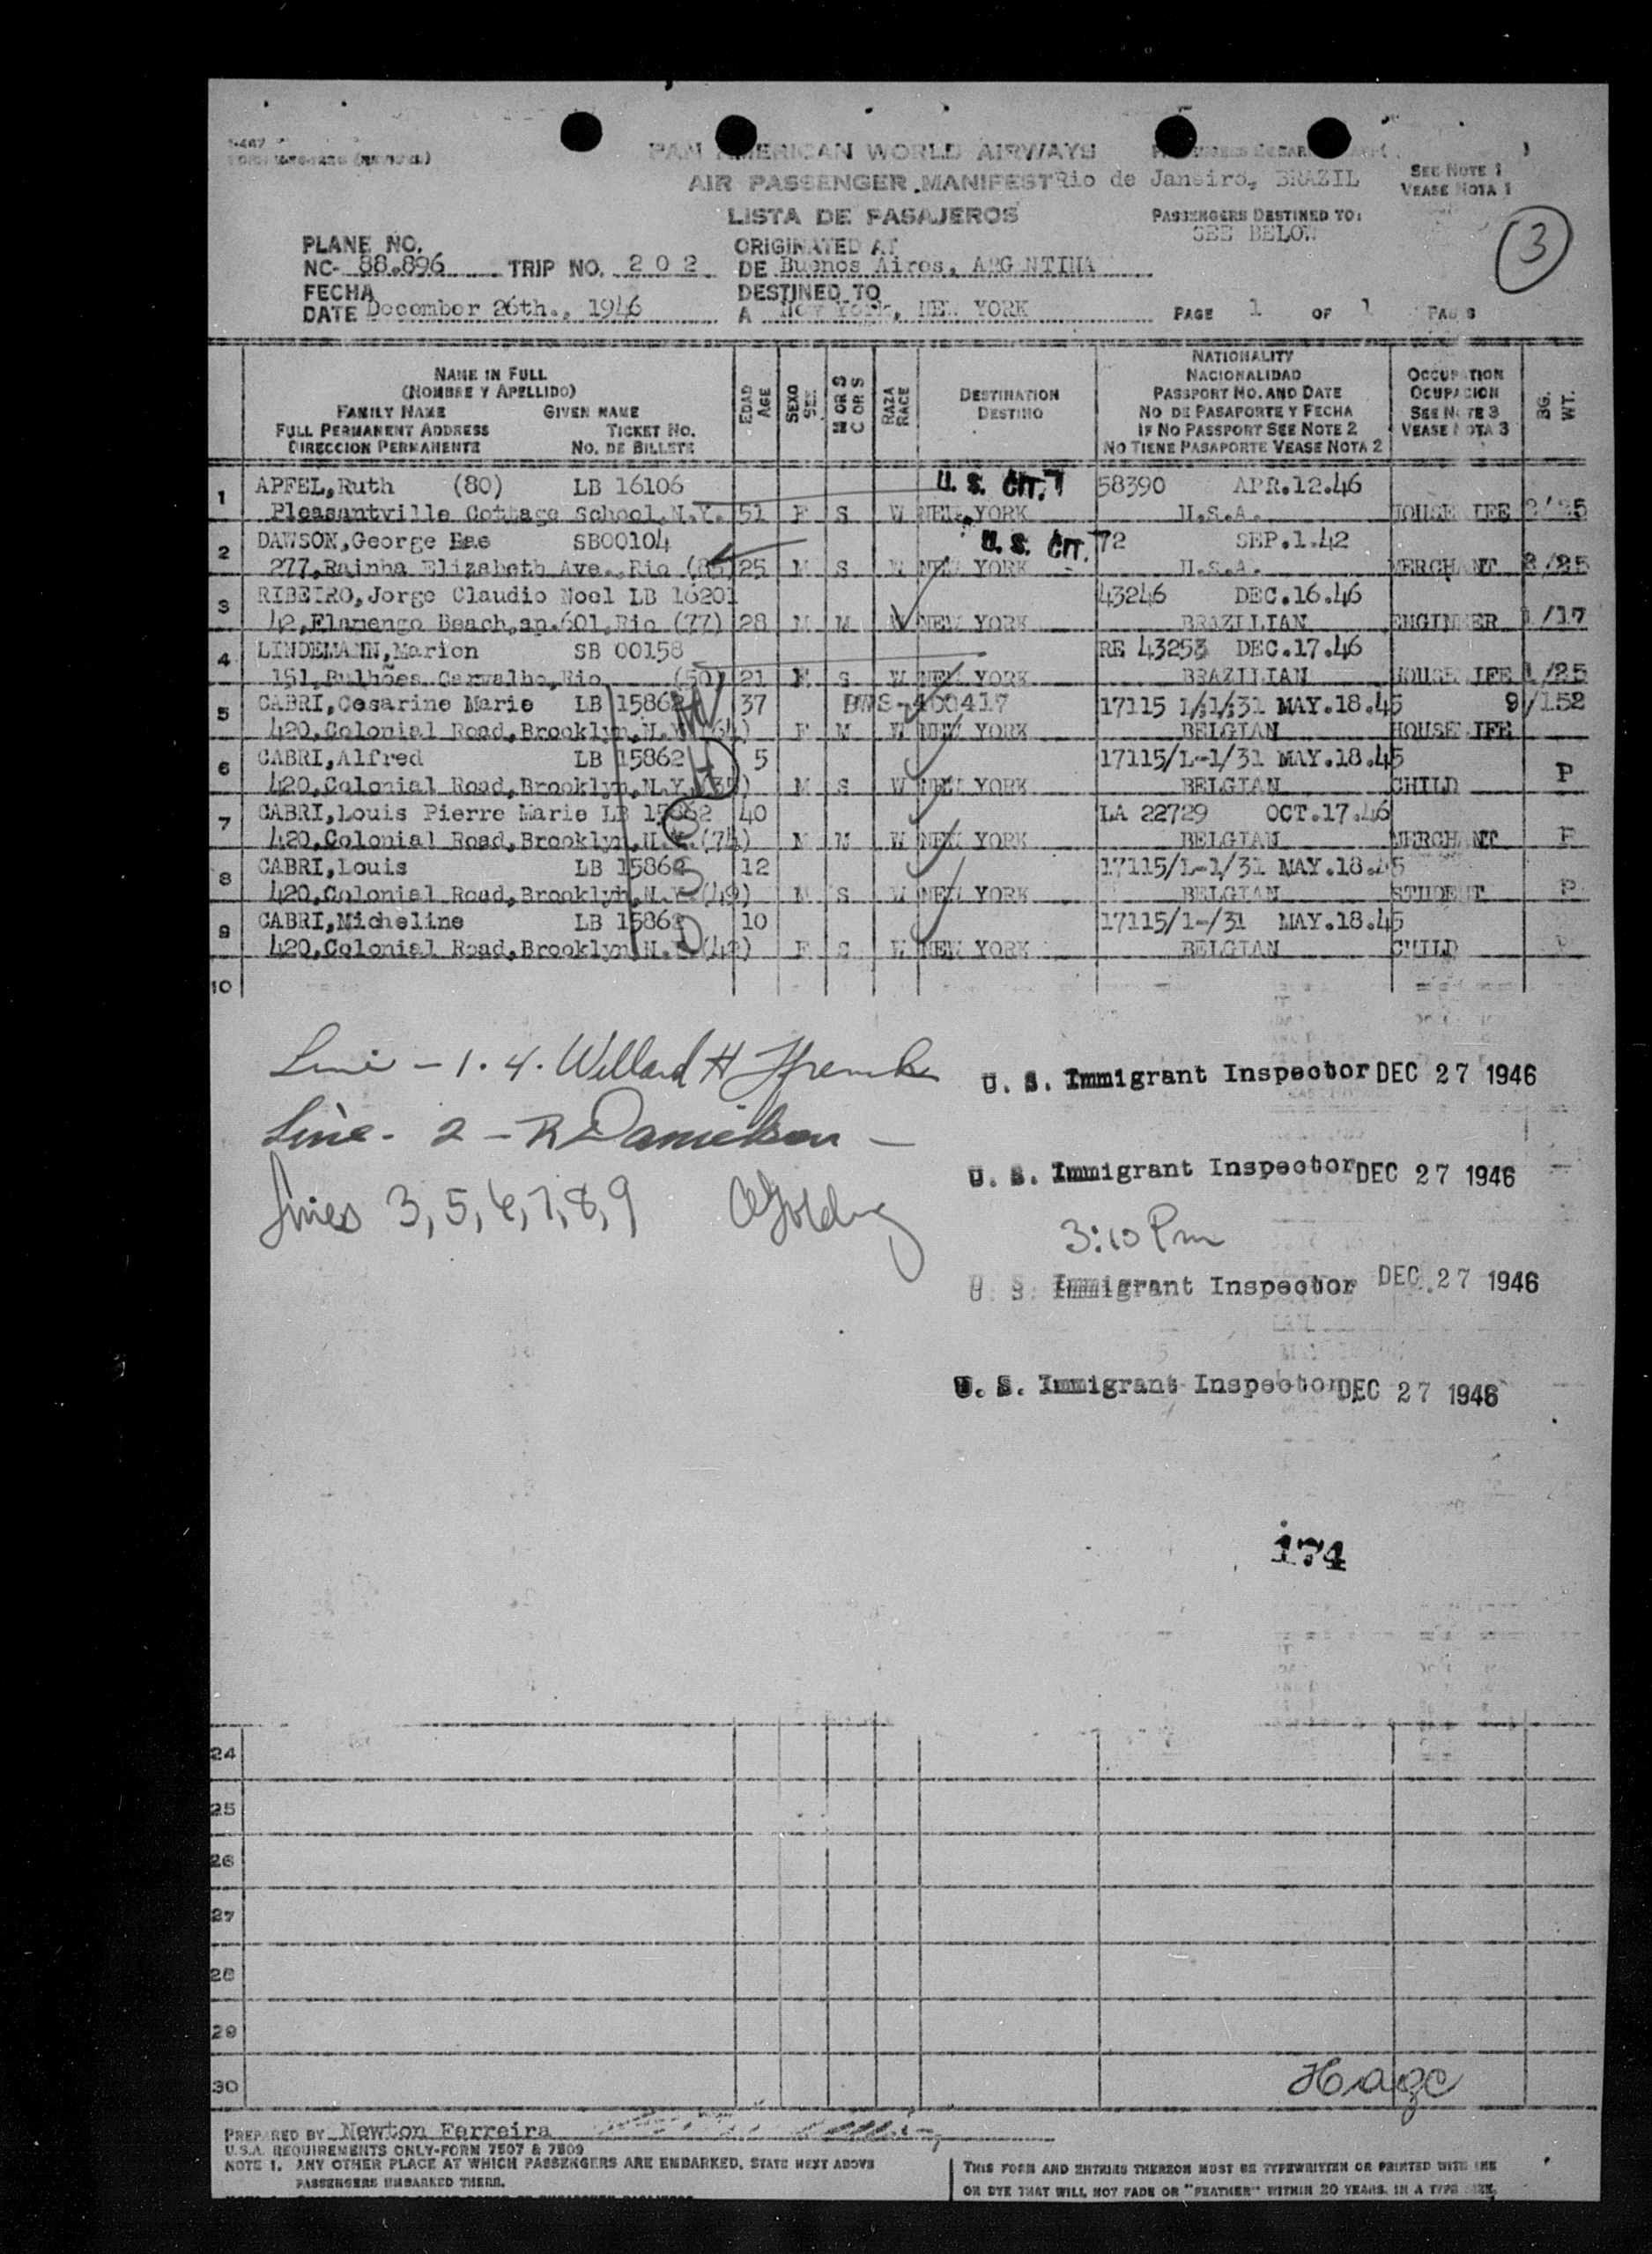 PAN AMERICAN WORLD AIRWAYS
AIR PASSENGER MANIFEST Rio de Janeiro, BRAZIL
SEE NOTE 1
VEASE NOTA 1
LISTA DE PASAJEROS
PASSENGERS DESTINED TO:
SEE BELOW
3
PLANE NO.
NC- 88.896 TRIP NO. 202
ORIGINATED AT
DE Buenos Aires, ARGENTINA
FECHA
DATE December 26th., 1946
DESTINED TO
A New York, NEW YORK
PAGE 1 OF 1
NAME IN FULL
(NOMBRE Y APELLIDO)
FAMILY NAME GIVEN NAME
FULL PERMANENT ADDRESS TICKET NO.
DIRECCION PERMANENTE NO. DE BILLETE
EDAD AGE
SEXO SEX
M OR S
C OR S
RAZA RACE
DESTINATION
DESTINO
NATIONALITY
NACIONALIDAD
PASSPORT NO. AND DATE
NO DE PASAPORTE Y FECHA
IF NO PASSPORT SEE NOTE 2
NO TIENE PASAPORTE VEASE NOTA 2
OCCUPATION
OCUPACION
SEE NOTE 3
VEASE NOTA 3
BG. WT.
1 APFEL,Ruth (80) LB 16106 U. S. CIT. 58390 APR.12.46
Pleasantville Cottage School,N.Y. 51 F S W NEW YORK U.S.A. HOUSEWIFE 2/25
2 DAWSON,George SB00104 U. S. CIT. 72 SEP.1.42
277,Rainha Elizabeth Ave.,Rio 25 M S W NEW YORK U.S.A. MERCHANT 2/25
3 RIBEIRO,Jorge Claudio Noel LB 16201 43246 DEC.16.46
42,Flamengo Beach,ap.601,Rio (77) 28 M M W NEW YORK BRAZILIAN ENGINEER 1/17
4 LINDEMANN,Marion SB 00158 RE 43253 DEC.17.46
151,Bulhões Carvalho,Rio (50) 21 F S W NEW YORK BRAZILIAN HOUSEWIFE 1/25
5 CABRI,Cesarine Marie LB 15862 37 17115 L/1/31 MAY.18.45 9/152
420,Colonial Road,Brooklyn,N.Y. (64) F M W NEW YORK BELGIAN HOUSEWIFE
6 CABRI,Alfred LB 15862 5 17115/L-1/31 MAY.18.45
420,Colonial Road,Brooklyn,N.Y. M S W NEW YORK BELGIAN CHILD P
7 CABRI,Louis Pierre Marie LB 15862 40 LA 22729 OCT.17.46
420,Colonial Road,Brooklyn,N.Y. (74) M M W NEW YORK BELGIAN MERCHANT P
8 CABRI,Louis LB 15862 12 17115/L-1/31 MAY.18.45
420,Colonial Road,Brooklyn,N.Y. (49) M S W NEW YORK BELGIAN STUDENT P
9 CABRI,Micheline LB 15862 10 17115/1-/31 MAY.18.45
420,Colonial Road,Brooklyn N.Y. (42) F S W NEW YORK BELGIAN CHILD P
10
Line - 1. 4. Willard H
U. S. Immigrant Inspector DEC 27 1946
Line - 2 - R Danielson -
U. S. Immigrant Inspector DEC 27 1946
Lines 3, 5, 6, 7, 8, 9 Golding
3:10 Pm
U. S. Immigrant Inspector DEC. 27 1946
U. S. Immigrant Inspector DEC 27 1946
174
24
25
26
27
28
29
30
PREPARED BY Newton Ferreira
U.S.A. REQUIREMENTS ONLY-FORM 7507 & 7509
NOTE 1. ANY OTHER PLACE AT WHICH PASSENGERS ARE EMBARKED, STATE NEXT ABOVE
PASSENGERS EMBARKED THERE.
THIS FORM AND ENTRIES THEREON MUST BE TYPEWRITTEN OR PRINTED WITH INK
OR DYE THAT WILL NOT FADE OR "FEATHER" WITHIN 20 YEARS. IN A TYPE SIZE